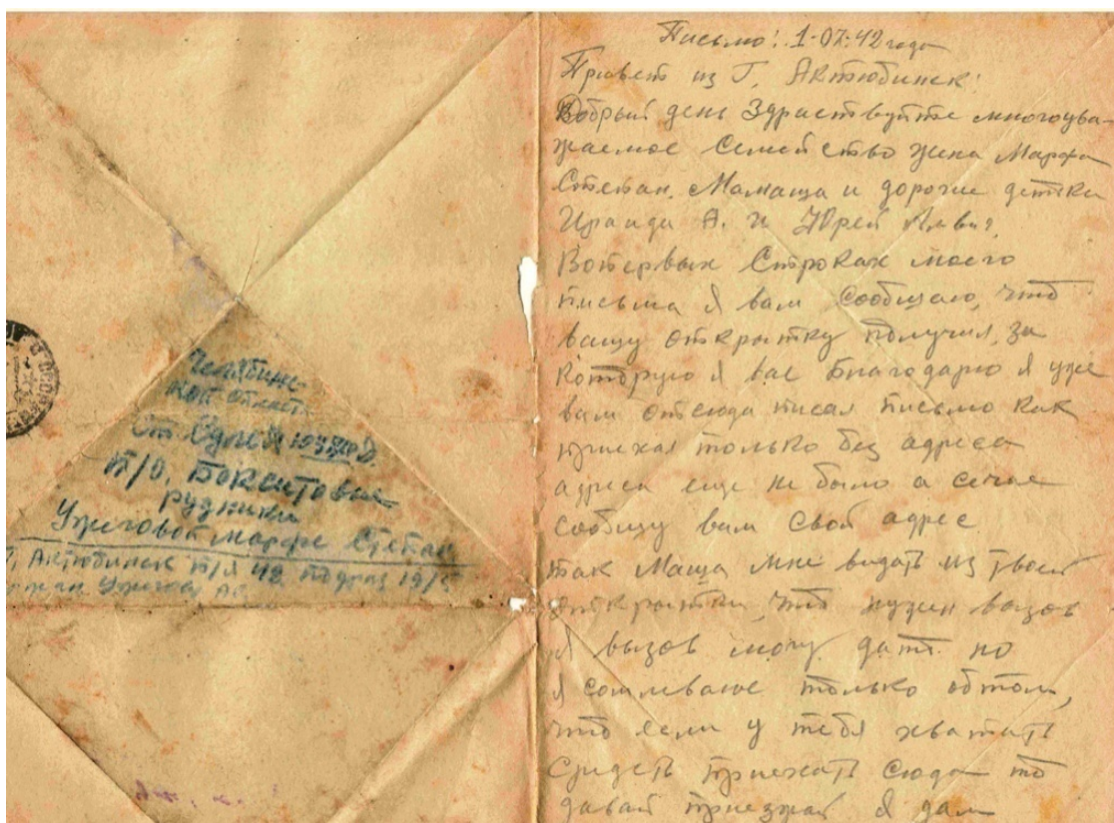 Челябинс
кой област
Ст. Сулея Южур. Д.
П/О. Бокситовые
рудники
Ужеговой Марфе Степан
Г, Актюбинск п/я 42 подраз 19/5
Ужегов АС
Письмо! 1-07.42 года
Привет из Г. Актюбинск!
Добрый день Здраствуйте многоува-
жаемое Семейство жена Марфа
Степан. Мамаша и дорогие детки
Ираида А. и Юрей
Вопервых Строках моего
письма я вам Сообщаю, что
вашу открытку получил, за
которую я вас благодарю я уже
вам отсюда писал письмо как
приехал только без адреса
адреса еще не было а сечас
сообщу вам свой адрес
так Маша мне видать из твоей
открытки, что нужен вызов
я вызов могу дать но
я сомневаюс только обтом,
что если у тебя хватить
Средсть приехать сюда то
давай приезжай я дам